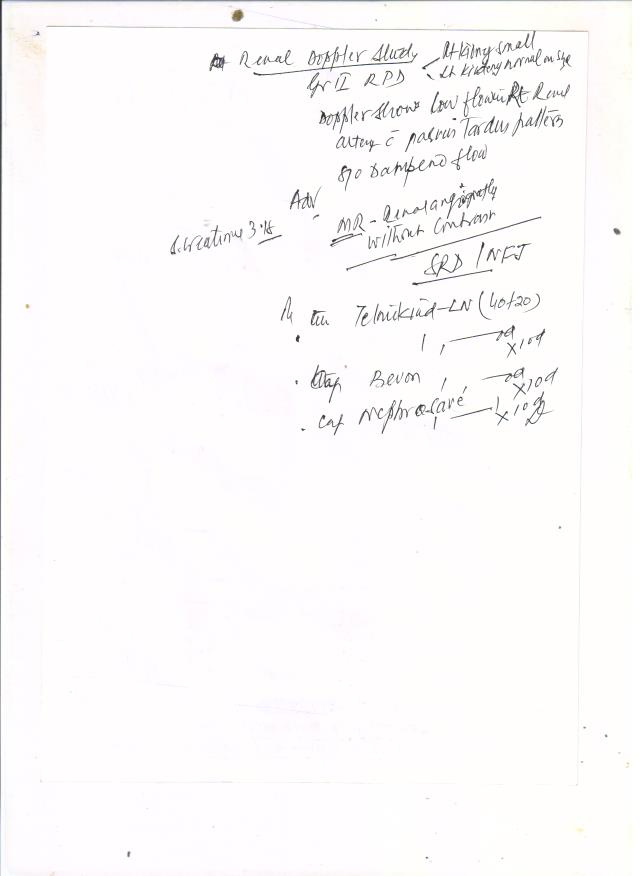 Renal Doppler Study
Rt kidney small
Lt kindeny normal in size
Gr II RPD
Doppler shows low flow in Rt Renal
artery c̄ parvus Tardus pattern
s/o Dampend flow
Adv
MR - Renal angiography
without contrast
S. Creatinine 3.18
SRD / NFJ
Rx Telmikind-LN (40+20)
1, — od
x 10d
Cap Bevon 1, — od
x 10d
Cap Nephrocare
1 — 1
x 10d